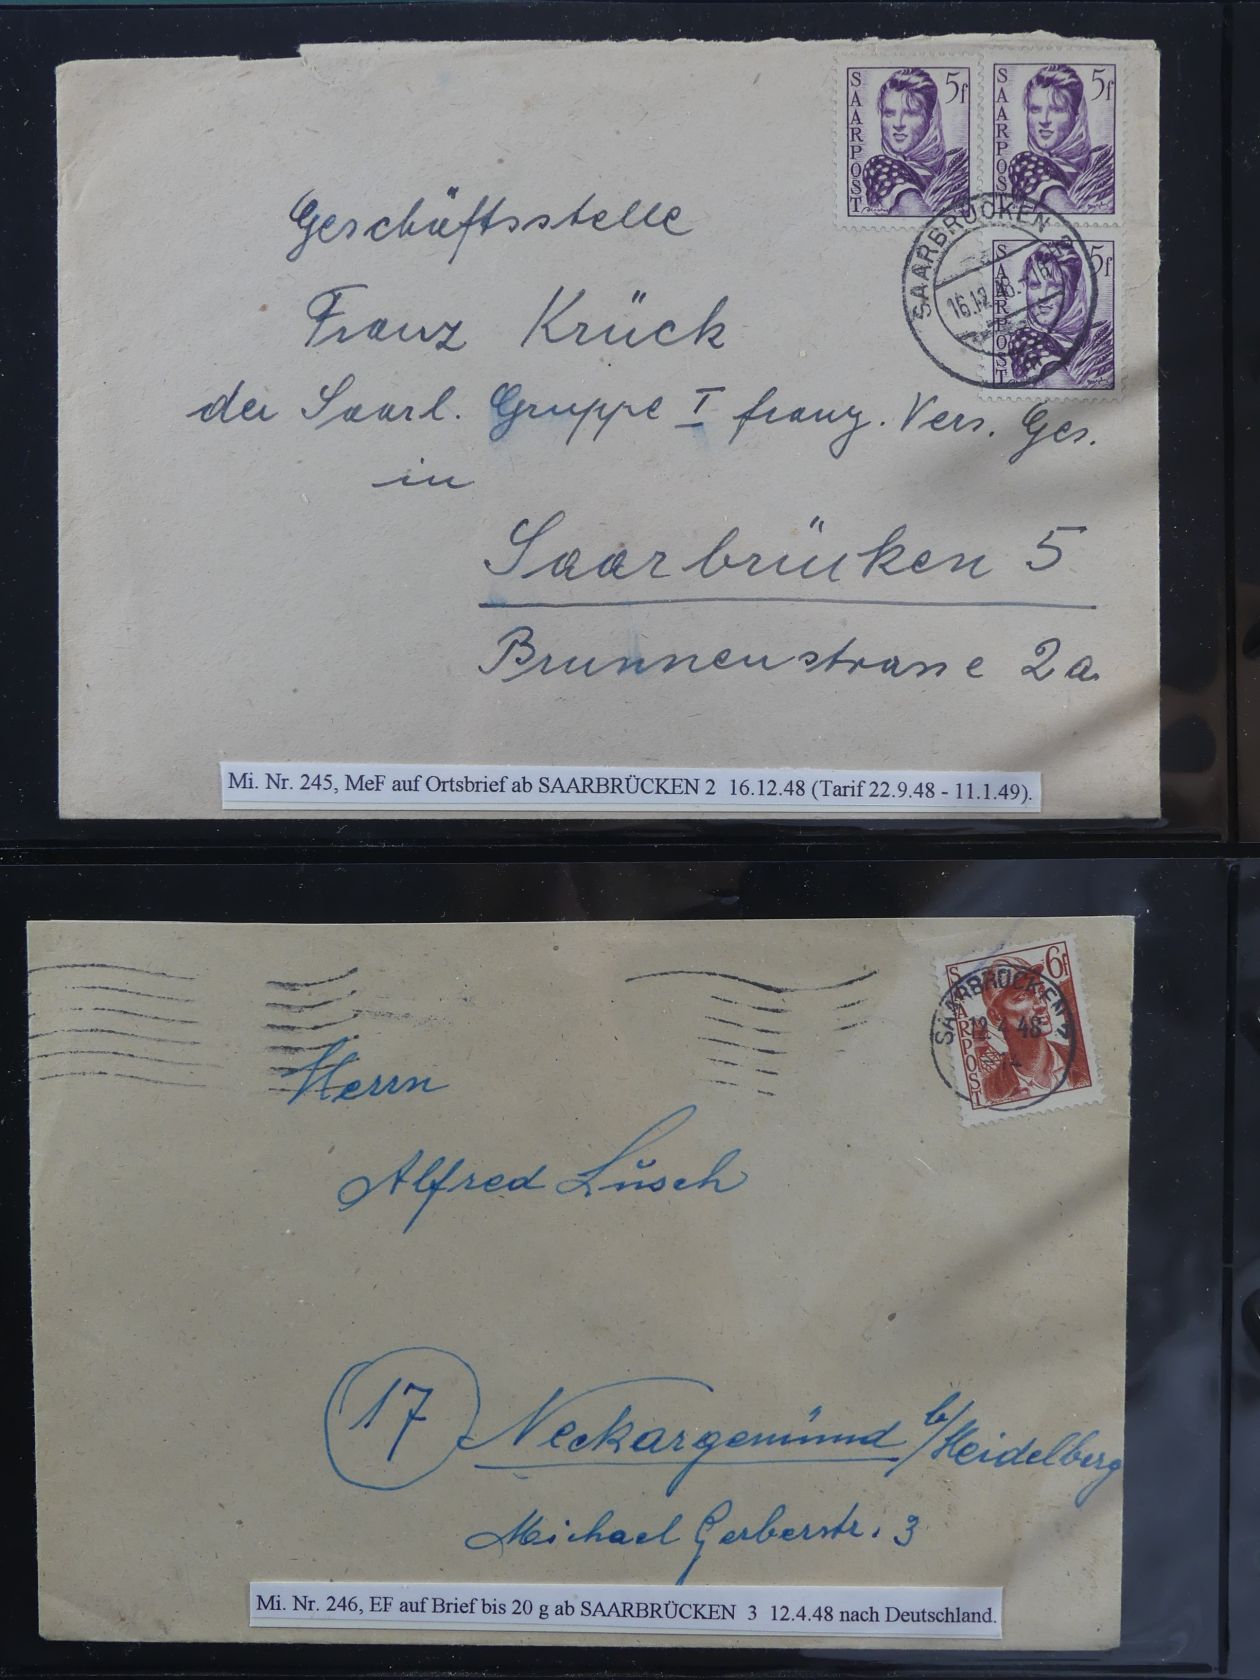 SAARPOST 5f
SAARPOST 5f
SAARPOST 5f
SAARBRÜCKEN 2
16.12.48.-18
Geschäftsstelle
Franz Krück
der Saarl. Gruppe I franz. Vers. Ges.
in
Saarbrücken 5
Brunnenstrasse 2a
Mi. Nr. 245, MeF auf Ortsbrief ab SAARBRÜCKEN 2 16.12.48 (Tarif 22.9.48 - 11.1.49).
SAARPOST 6f
SAARBRÜCKEN 3
12.4.48
Herrn
Alfred Lüsch
17 Neckargemünd b/Heidelberg
Michael Gerberstr. 3
Mi. Nr. 246, EF auf Brief bis 20 g ab SAARBRÜCKEN 3 12.4.48 nach Deutschland.